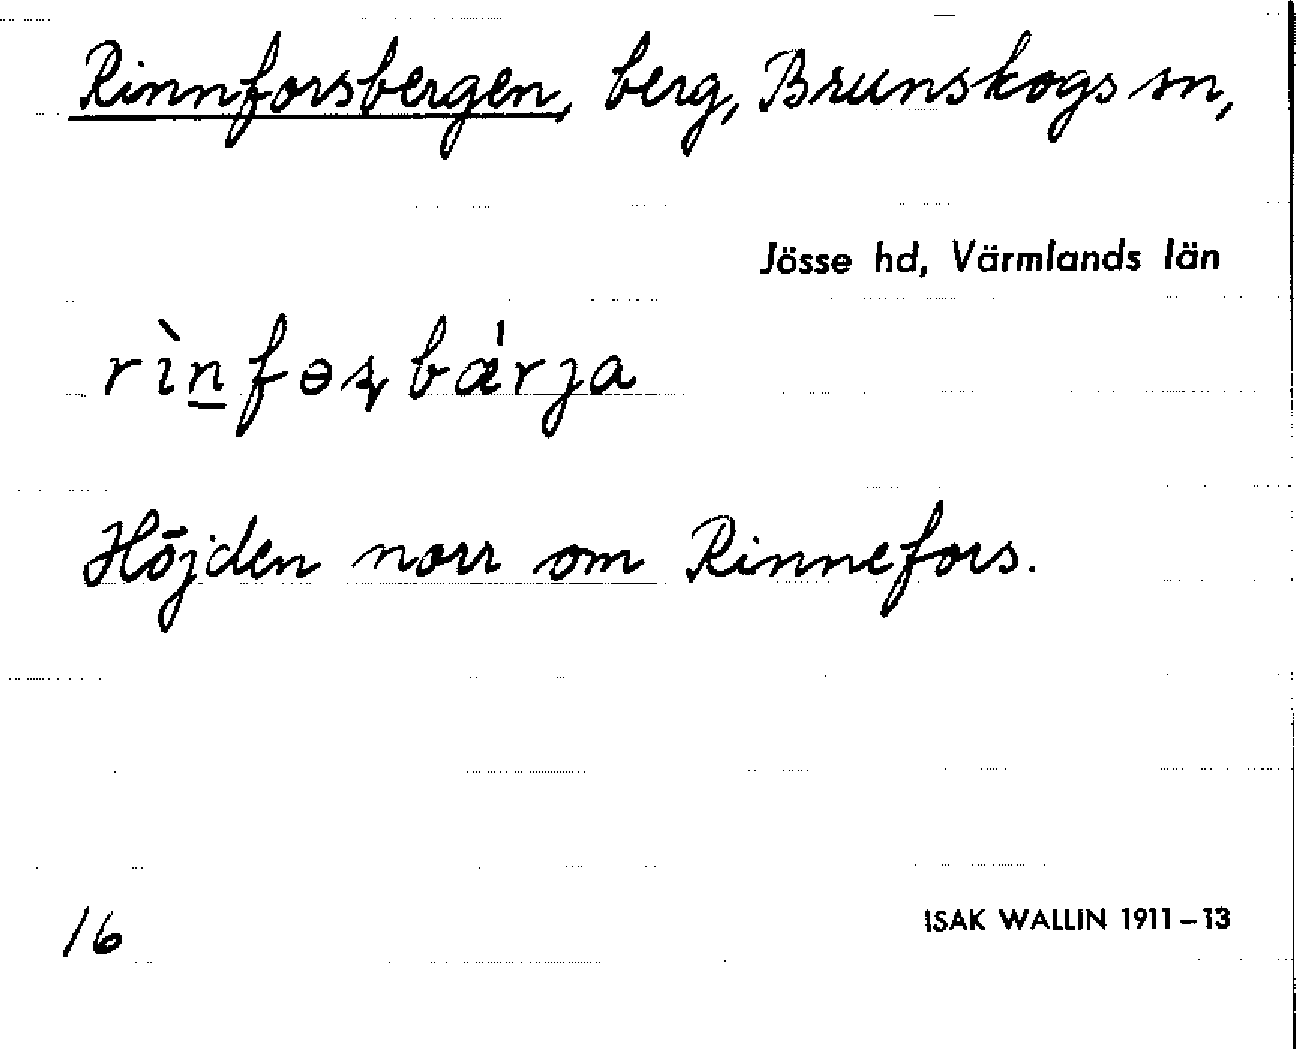 Rinnforsbergen, berg, Brunskogs sn,
Jösse hd, Värmlands län
rìn̲fɵꞩbǽrja
Höjden norr om Rinnefors.
16
ISAK WALLIN 1911–13